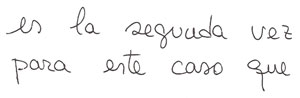 es la segunda vez
para este caso que